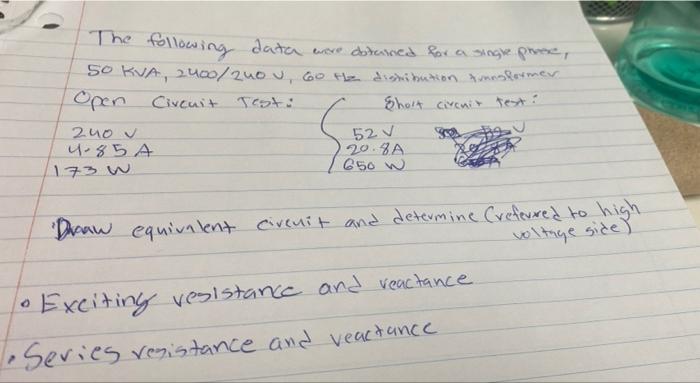 The following data were obtained for a single phase,
50 KVA, 2400/240 V, 60 Hz distribution transformer
Open Circuit Test: Short circuit test:
240 V 52 V
4.85 A 20.8A
173 W 650 W
Draw equivalent circuit and determine (referred to high
voltage side)
• Exciting resistance and reactance
• Series resistance and reactance